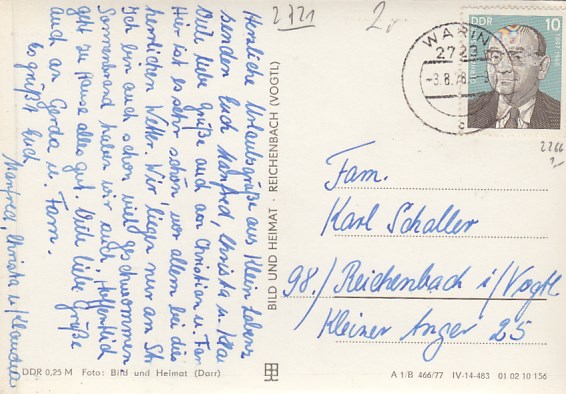 Herzliche Urlaubsgrüße aus Klein Labenz
senden Euch Manfred, Christa u. Kla
Viele liebe Grüße auch an Christian u. Fam
Hier ist es sehr schön, vor allem bei dies
herrlichen Wetter. Wir liegen nur am St
Ich bin auch schon viel geschwommen
Sonnenbrand haben wir auch. Hoffentlich
geht zu Hause alles gut. Viele liebe Grüße
auch an Gerda u. Fam.
Es grüßt Euch
Manfred, Christa u. Klaudia
2721
2,-
WARIN
2723
-3.8.78
DDR
10
2266
BILD UND HEIMAT · REICHENBACH (VOGTL)
Fam.
Karl Schaller
98./Reichenbach i/Vogtl
Kleiner Anger 25
DDR 0,25 M Foto: Bild und Heimat (Darr)
A 1/B 466/77 IV-14-483 01 02 10 156